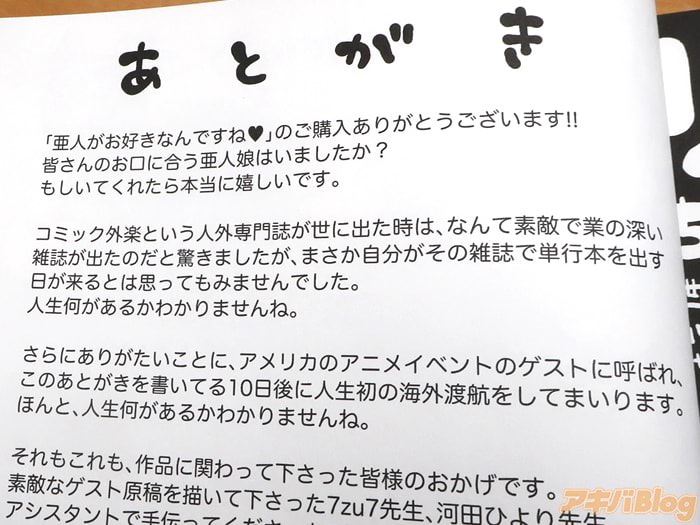 あとがき
「亜人がお好きなんですね♥」のご購入ありがとうございます!!
皆さんのお口に合う亜人娘はいましたか？
もしいてくれたら本当に嬉しいです。
コミック外楽という人外専門誌が世に出た時は、なんて素敵で業の深い
雑誌が出たのだと驚きましたが、まさか自分がその雑誌で単行本を出す
日が来るとは思ってもみませんでした。
人生何があるかわかりませんね。
さらにありがたいことに、アメリカのアニメイベントのゲストに呼ばれ、
このあとがきを書いてる10日後に人生初の海外渡航をしてまいります。
ほんと、人生何があるかわかりませんね。
それもこれも、作品に関わって下さった皆様のおかげです。
素敵なゲスト原稿を描いて下さった7zu7先生、河田ひより先生
アシスタントで手伝ってくださ
アキバBlog